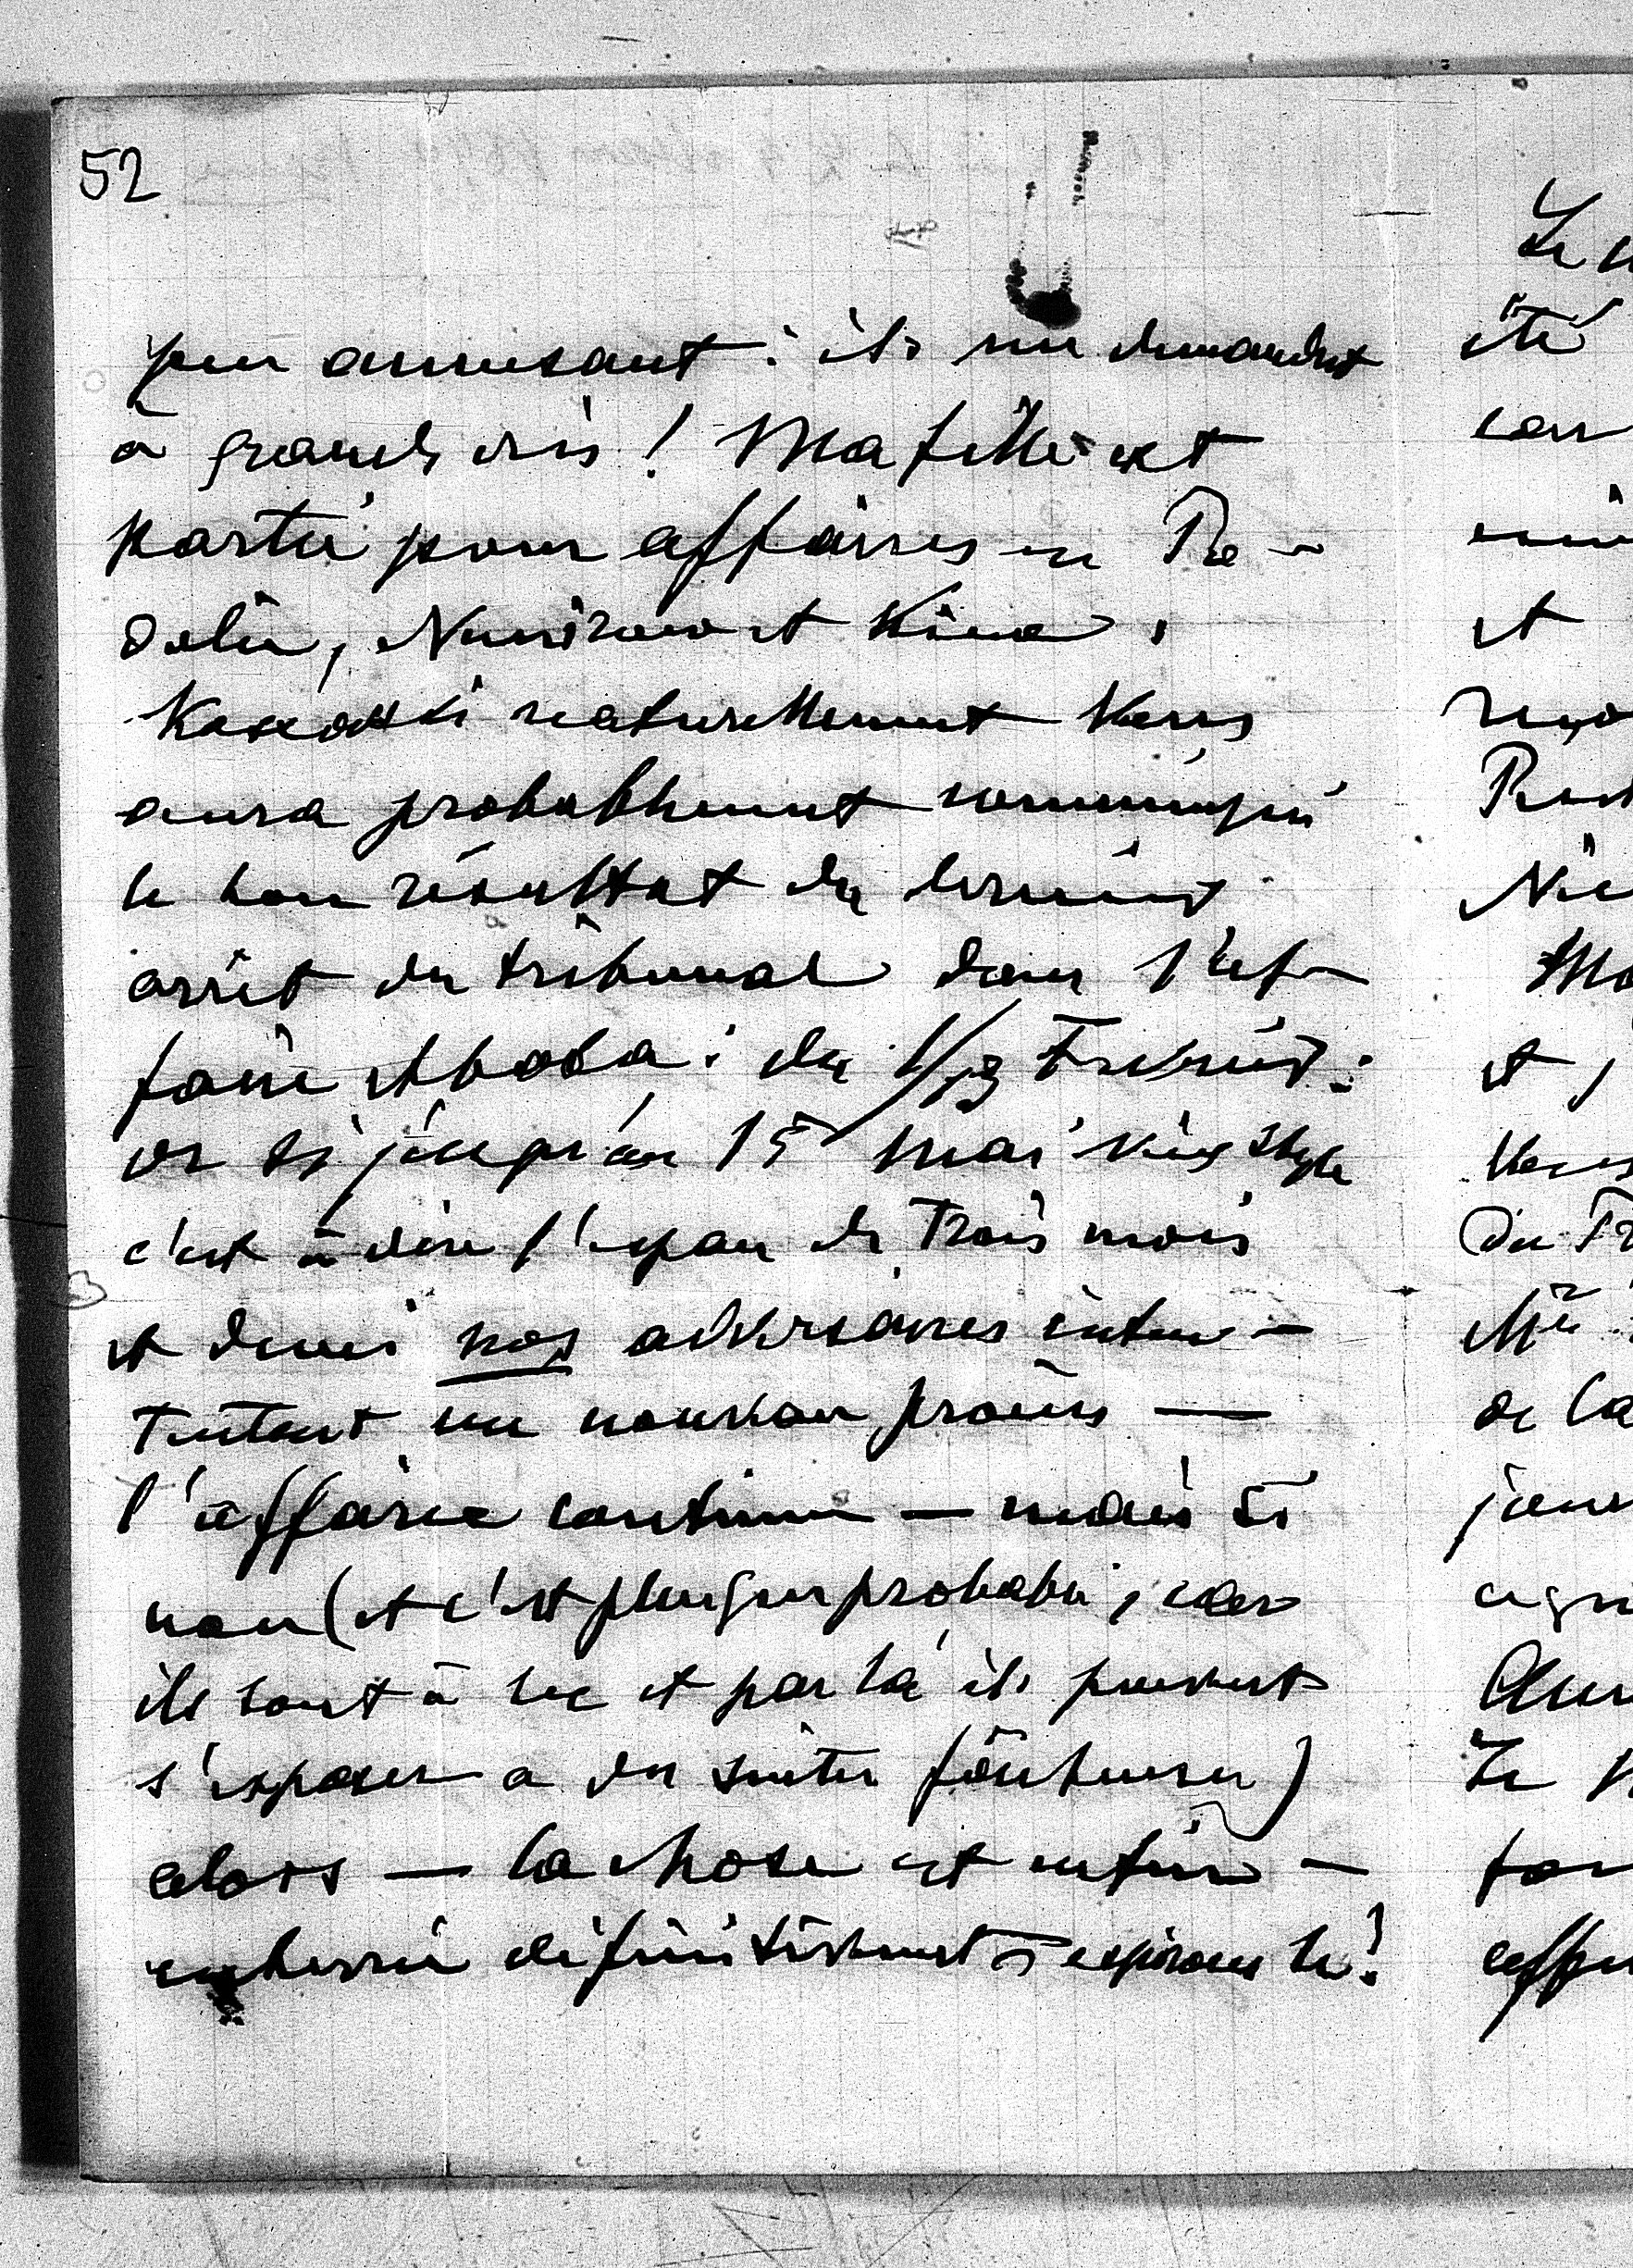 52
peu amusant: ils me demandent
à grands cris! Ma fille est
partie pour affaires en Po-
dolie, et Kiew.
naturellement Vous
aura probablement communiqué
le bon résultat du dernier
arrêt du tribunal dans l'af-
faire du 1/13 Fevrier:
or si jusqu'au 15 Mai vieux style
c'est à dire l'espace de trois mois
et demi nos adversaires inten-
tent un nouveau procès —
l'affaire continue — mais si
non (et c'est plus que probable, car
ils sont à sec et par là ils peuvent
s'exposer a des suites facheuses)
alors — la chose est enfin —
enterrée définitivement, espérons le!
Le
été
et
Mo
et
Vous
de la
Le